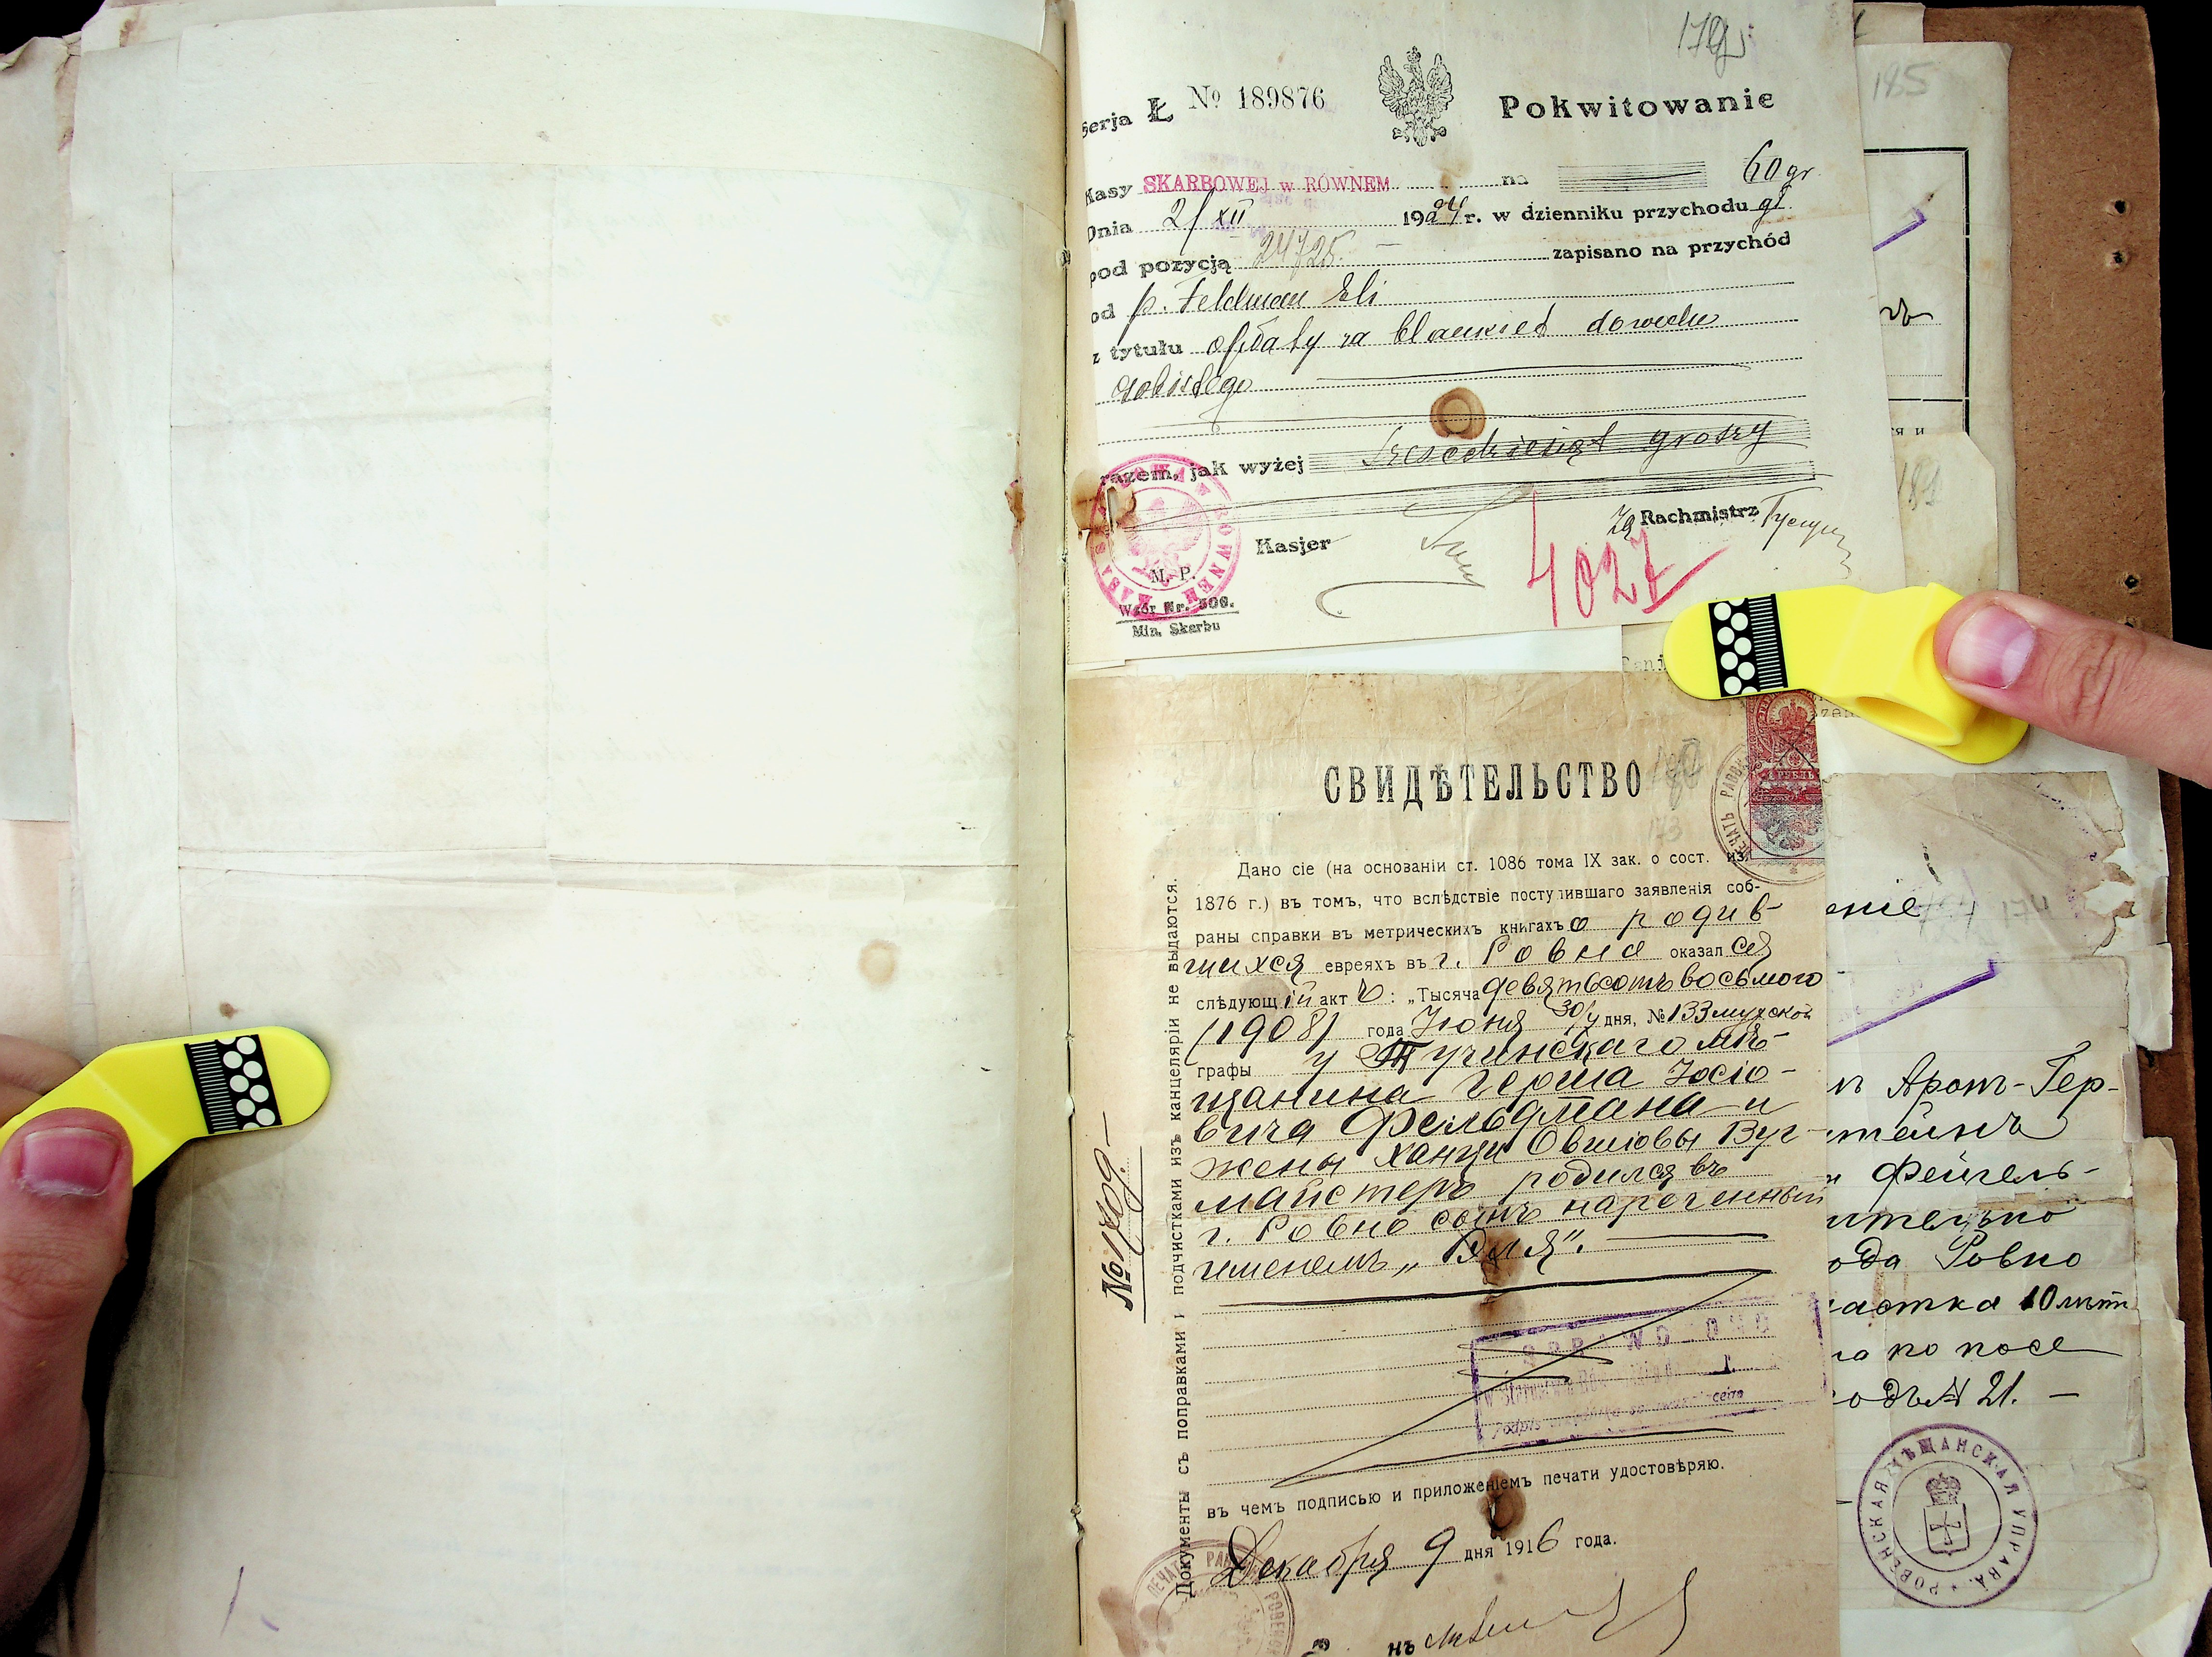 179
Serja Ł № 189876 Pokwitowanie
Kasy SKARBOWEJ w RÓWNEM na 60 gr
Dnia 21 XII 1924 r. w dzienniku przychodu gł.
pod pozycją 24725. — zapisano na przychód
od p. Feldman Eli
z tytułu opłaty za blankiet dowodu
osobistego
razem, jak wyżej sześćdziesiąt groszy
Kasjer
Za Rachmistrz
4027
M. P.
Wzór Nr. 500.
Min. Skarbu
СВИДѢТЕЛЬСТВО
Дано сіе (на основаніи ст. 1086 тома IX зак. о сост. из.
1876 г.) въ томъ, что вслѣдствіе поступившаго заявленія соб-
раны справки въ метрическихъ книгахъ о родив-
шихся евреяхъ въ г. Ровно оказался
слѣдующій актъ: „Тысяча девятьсотъ восьмого
(1908) года Іюня 30/ дня, № 133 мужской
графы у Тучинскаго мѣ-
щанина Герша Іосіо-
вича Фельдмана и
жены Ханци Овшіовы Вуг-
майстеръ родился въ
г. Ровно сынъ нареченный
именемъ „Эля".
SPRAWDZONO
въ чемъ подписью и приложеніемъ печати удостовѣряю.
Декабря 9 дня 1916 года.
Документы съ поправками и подчистками изъ канцеляріи не выдаются.
185
ся и
181
еніе 174
ъ Аронъ-Гер-
штейнъ
Фейгель-
ительно
ода Ровно
астка 10 лѣтъ
а по посе
одъ № 21. —
РОВЕНСКАЯ МѢЩАНСКАЯ УПРАВА